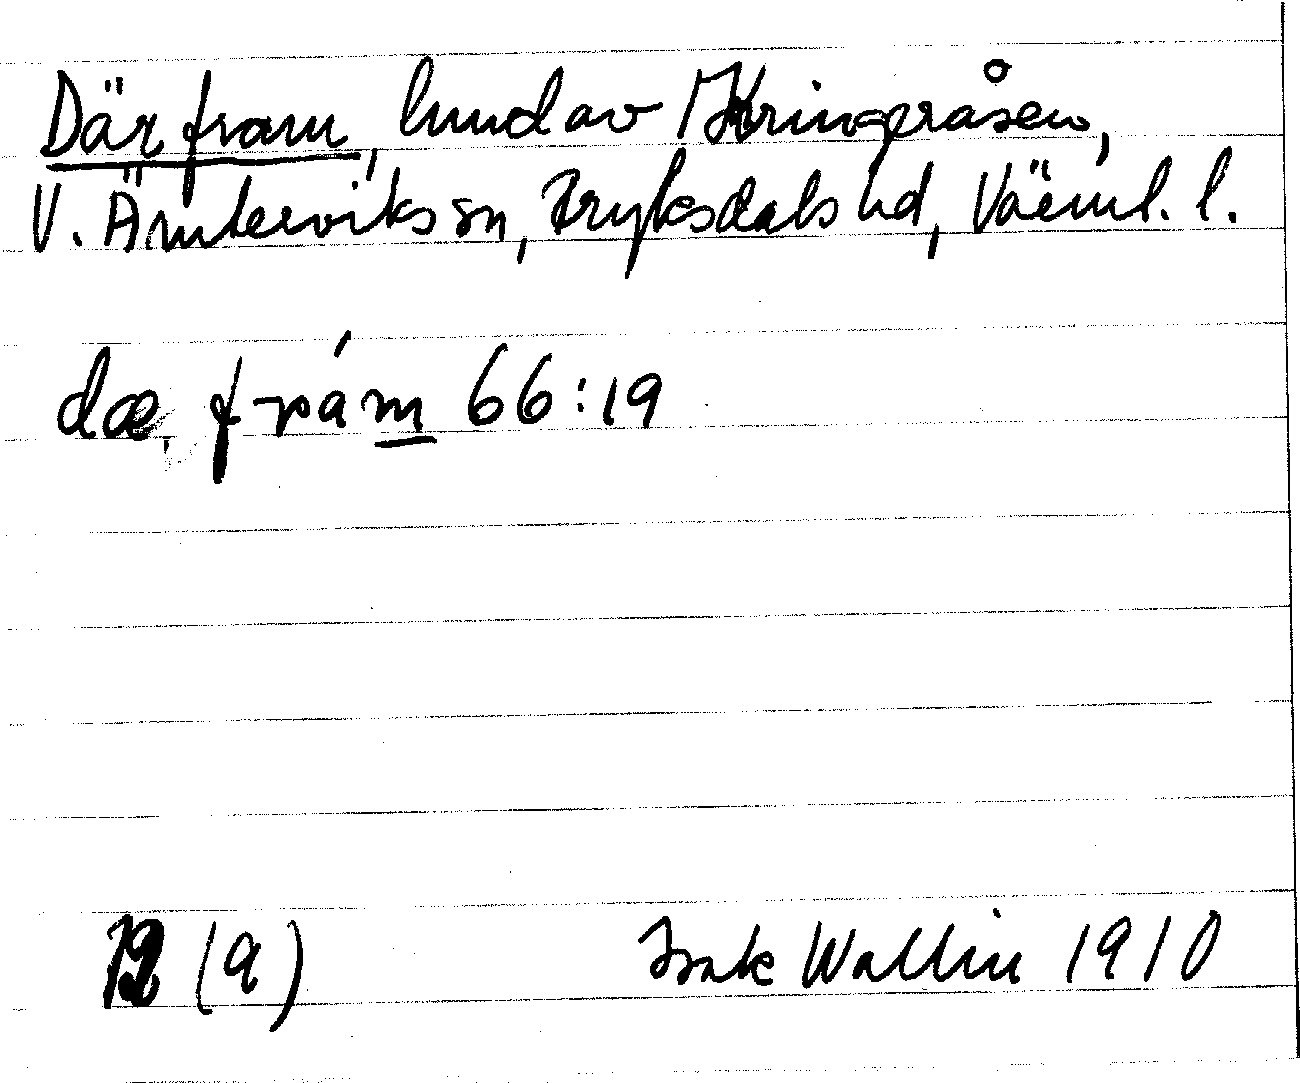 Där fram, lund av Kringeråsen,
V. Ämterviks sn, Fryksdals hd, Värml. l.
dæ, frám 66:19
(9) Isak Wallin 1910